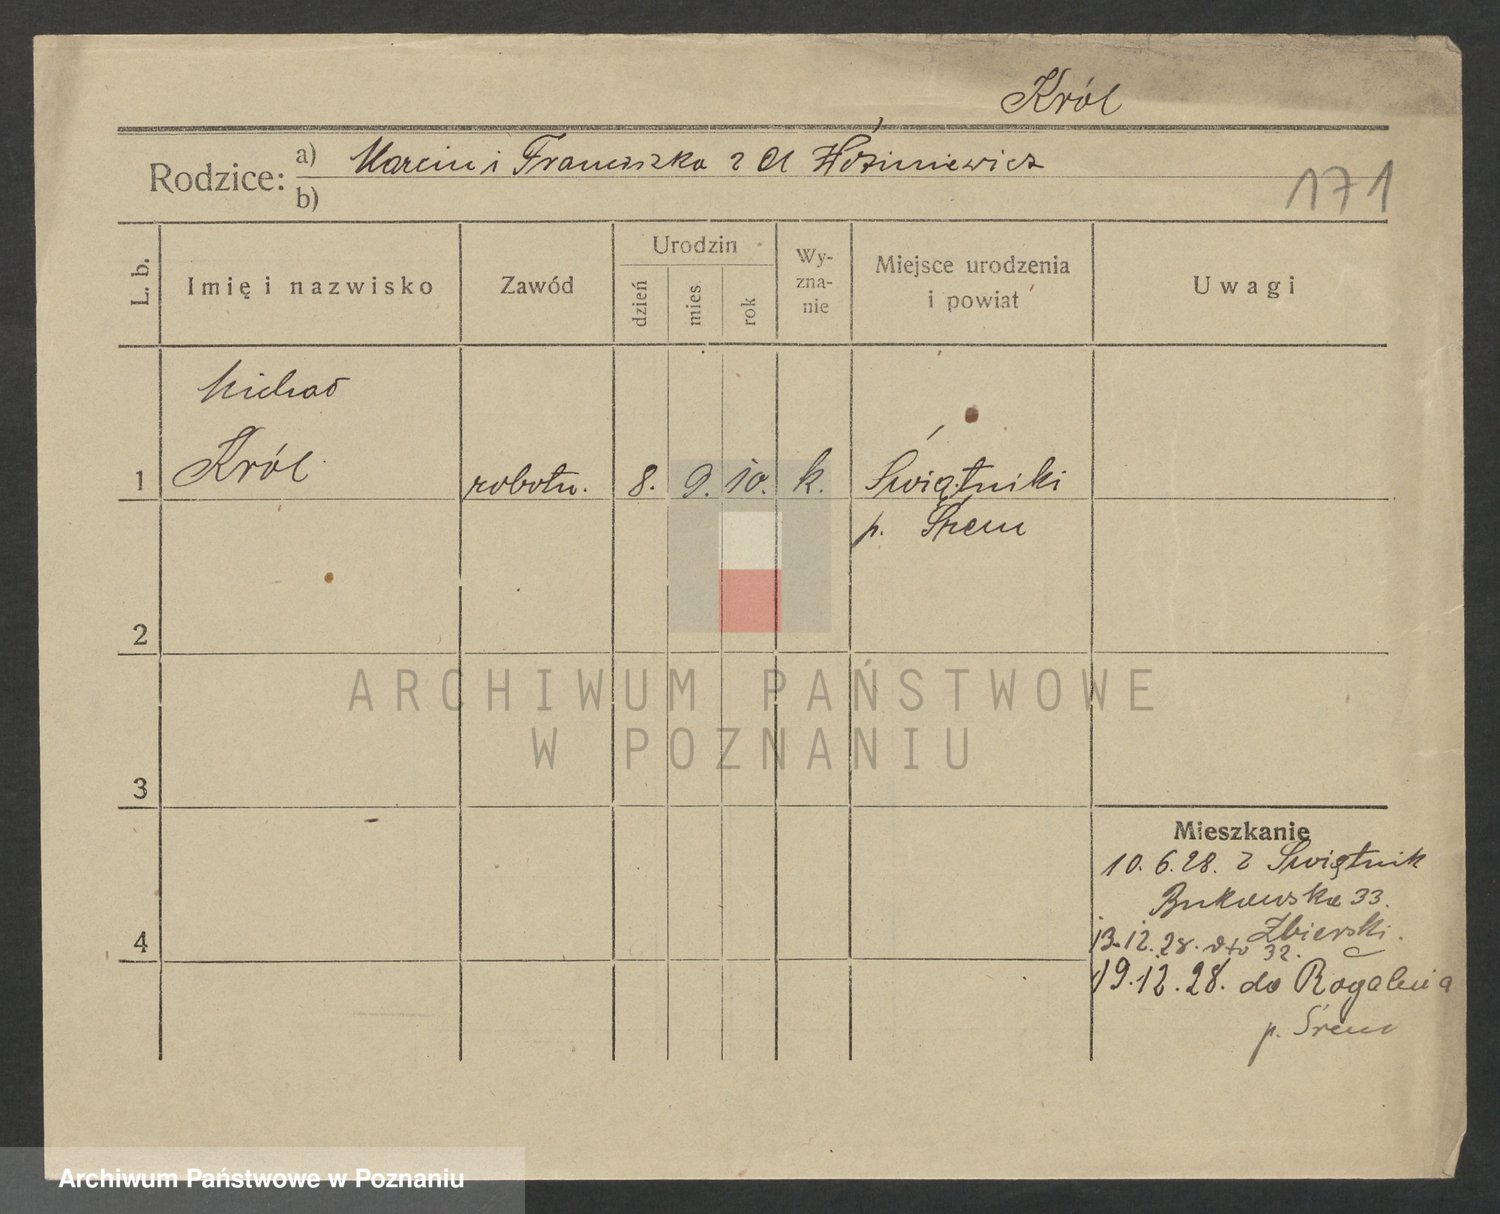 Król
Rodzice: a) Marcin i Franciszka z d
b)
171
L. b.
Imię i nazwisko
Zawód
Urodzin
dzień
mies.
rok
Wy-
zna-
nie
Miejsce urodzenia
i powiat
Uwagi
Michał
1 Król robotn. 8. 9. 10. k. Świątniki
p. Śrem
2
3
4
Mieszkanie
10.6.28. z Świątnik
Bukowska 33.
Zbierski.
13.12.28. dto 32.
19.12.28. do Rogalina
p. Śrem
ARCHIWUM PAŃSTWOWE
W POZNANIU
Archiwum Państwowe w Poznaniu